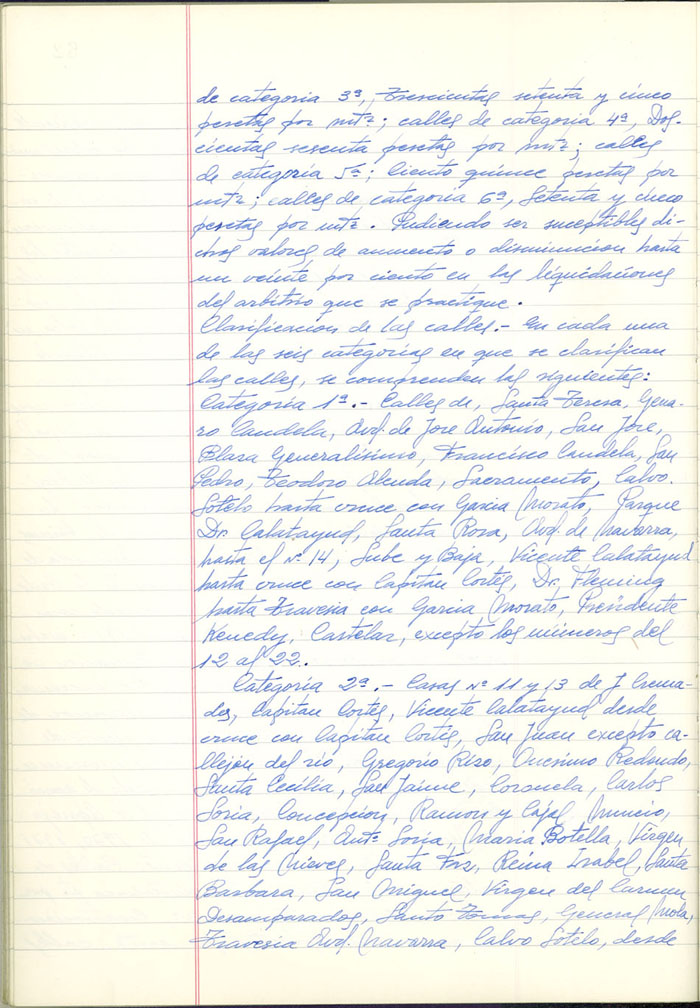 de categoria 3ª, Trescientas setenta y cinco
pesetas por mt²; calles de categoria 4ª, Dos-
cientas sesenta pesetas por mt²; calles
de categoria 5ª; Ciento quince pesetas por
mt²; calles de categoria 6ª, Setenta y cinco
pesetas por mt². Pudiendo ser suceptibles di-
chos valores, de aumento o disminucion hasta
un veinte por ciento en las liquidaciones
del arbitrio que se practique.
Clasificacion de las calles.- En cada una
de las seis categorias en que se clasifican
las calles, se comprenden las siguientes:
Categoria 1ª.- Calles de, Santa Teresa, Gena-
ro Candela, Avd. de Jose Antonio, San Jose,
Plaza Generalisimo, Francisco Candela, San
Pedro, Teodoro Alenda, Sacramento, Calvo
Sotelo hasta cruce con Garcia Morato, Parque
Dr. Calatayud, Santa Rosa, Avd. de Navarra,
hasta el nº 14, Sube y Baja, Vicente Calatayud
hasta cruce con Capitan Cortés, Dr. Fleming
hasta Travesia con Garcia Morato, Presidente
Kenedy, Castelar, excepto los números del
12 al 22.
Categoria 2ª.- Casas nº 11 y 13 de J. Crema-
des, Capitan Cortés, Vicente Calatayud desde
cruce con Capitan Cortés, San Juan excepto ca-
llejón del rio, Gregorio Rizo, Onesimo Redondo,
Santa Cecilia, San Jaime, Coronela, Carlos
Soria, Concepcion, Ramon y Cajal, Nuncio,
San Rafael, Antº Soria, Maria Botella, Virgen
de las Nieves, Santa Faz, Reina Isabel, Santa
Barbara, San Miguel, Virgen del Carmen
Desamparados, Santo Tomas, General Mola,
Travesia Avd. Navarra, Calvo Sotelo, desde